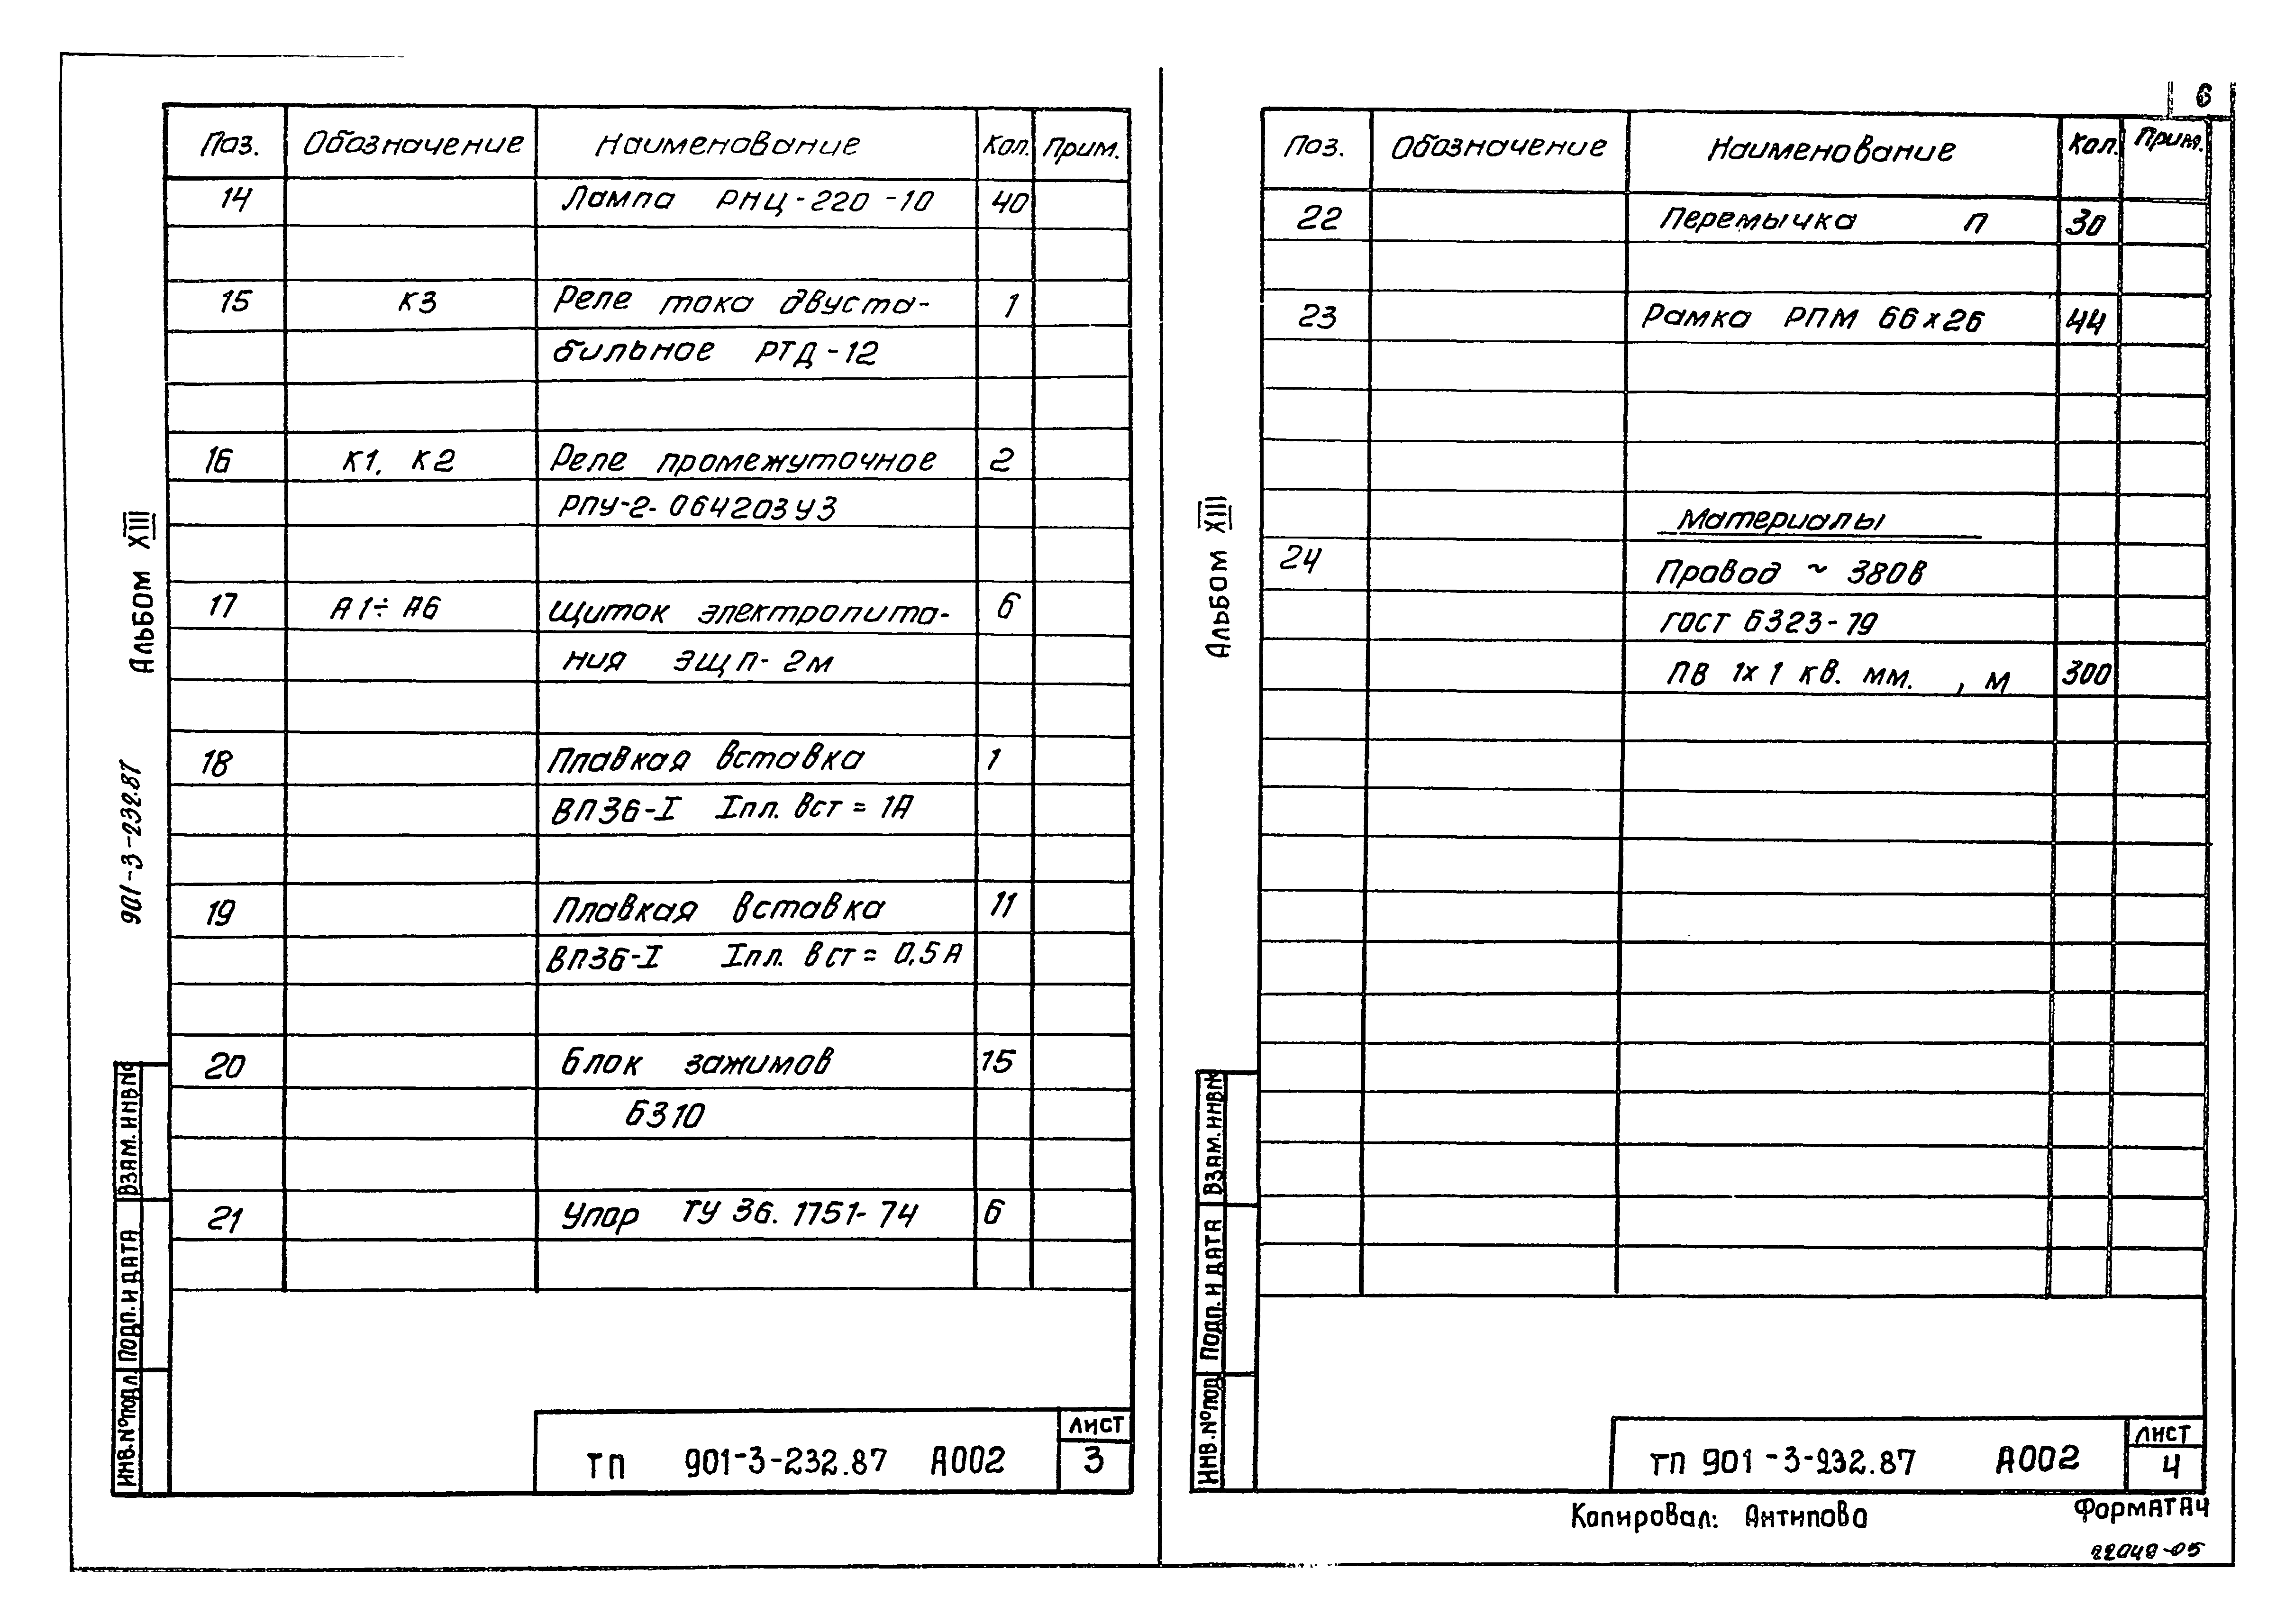 Поз. Обозначение Наименование Кол. Прим.
14 Лампа РНЦ-220-10 40
15 К3 Реле тока двуста- 1
бильное РТД-12
16 К1, К2 Реле промежуточное 2
РПУ-2-064203У3
17 А1÷А6 Щиток электропита- 6
ния ЭЩП-2м
18 Плавкая вставка 1
ВПЗ6-I Iпл. вст = 1А
19 Плавкая вставка 11
ВПЗ6-I Iпл. вст = 0,5А
20 Блок зажимов 15
БЗ10
21 Упор ТУ 36.1751-74 6
Альбом XIII
901-3-232.87
ВЗАМ.ИНВ.№
ПОДП. И ДАТА
ИНВ.№ПОДЛ.
ТП 901-3-232.87 А002
лист
3
6
Поз. Обозначение Наименование Кол. Прим.
22 Перемычка П 30
23 Рамка РПМ 66х26 44
Материалы
24
Провод ~ 380В
ГОСТ 6323-79
ПВ 1х1 кв. мм. , м 300
Альбом XIII
ВЗАМ.ИНВ.№
ПОДП. И ДАТА
ИНВ.№ПОД
ТП 901-3-232.87 А002
ЛИСТ
4
Копировал: Антипова ФорматА4
22048-05